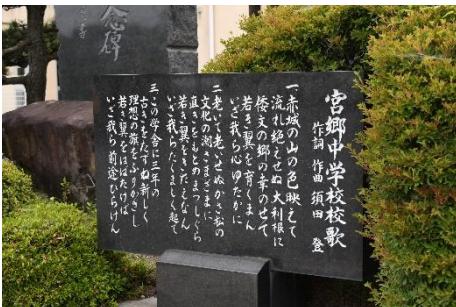 宮郷中学校校歌
作詞 作曲 須田 登
一、赤城の山の色映えて
流れ絶えせぬ大利根に
倭文の郷の幸のせて
若き翼を育くまん
いざ我ら心ゆたかに
二、老いて老いせぬかさ松の
文化の潮さまざまに
直きをもとめまっしぐら
若き翼をきたえなん
いざ我らたくましく起て
三、この学舎に三年の
古きをたずね新しく
理想の旗をふりかざし
若き翼をはばたけば
いざ我ら前途ひらけん
念碑